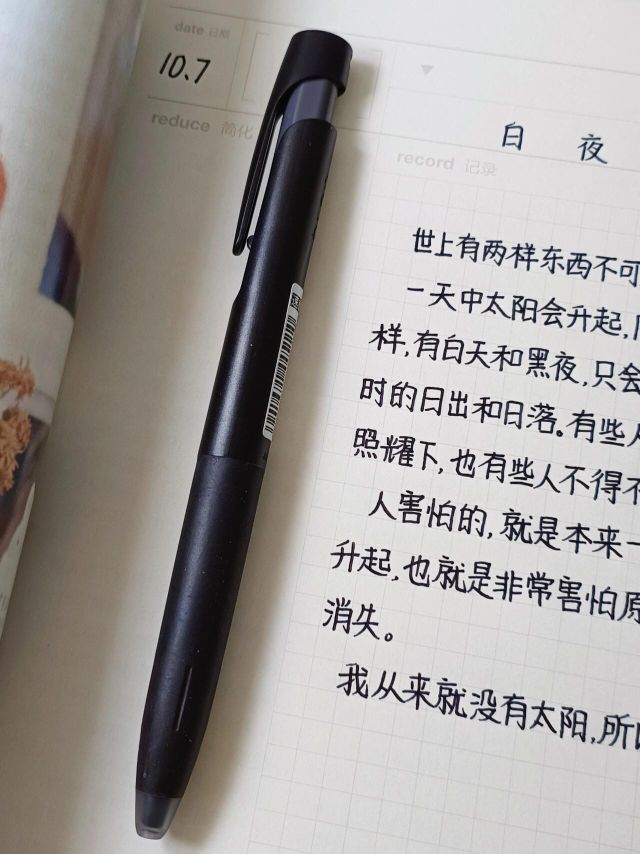 date 日期
10.7
reduce 简化
白 夜
record 记录
世上有两样东西不可
一天中太阳会升起,
样,有白天和黑夜,只会
时的日出和日落。有些人
照耀下,也有些人不得不
人害怕的,就是本来一
升起,也就是非常害怕原
消失。
我从来就没有太阳,所以